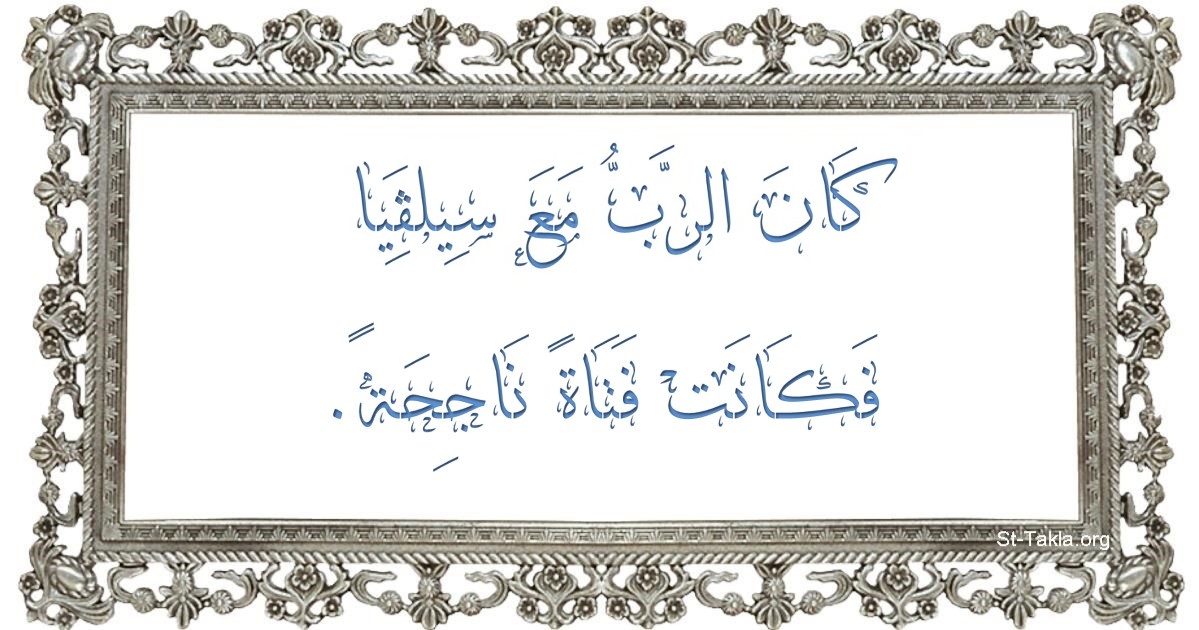 كَانَ الرَّبُّ مَعَ سِيلڤِيَا
فَكَانَتْ فَتَاةً نَاجِحَةً.
St-Takla.org